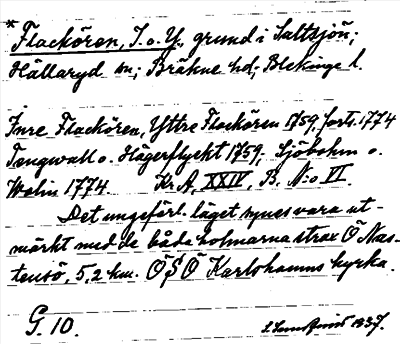 * Flackören, I. o. Y., grund i Saltsjön;
Hällaryd sn; Bräkne hd; Blekinge l.
Inre Flackören, Yttre Flackören 1759, forts. 1774
Tengwall o. Hägerflycht 1759; Sjöbohm o.
Wolin 1774 Kr. A, XXIV, B. N:o VI.
Det ungefärl. läget synes vara ut-
märkt med de båda holmarna strax Ö Nas-
tensö, 5,2 km. ÖSÖ Karlshamns kyrka.
G. 10.
1937.